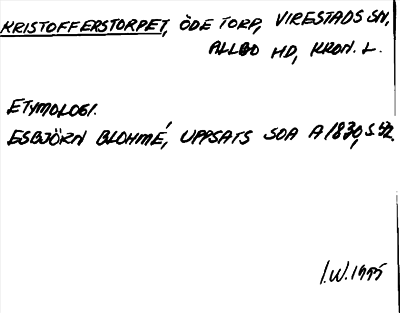 KRISTOFFERSTORPET, ÖDE TORP, VIRESTADS SN,
ALLBO HD, KRON. L.
ETYMOLOGI.
ESBJÖRN BLOHMÉ, UPPSATS SOA A 1830, S.
I.W. 1995